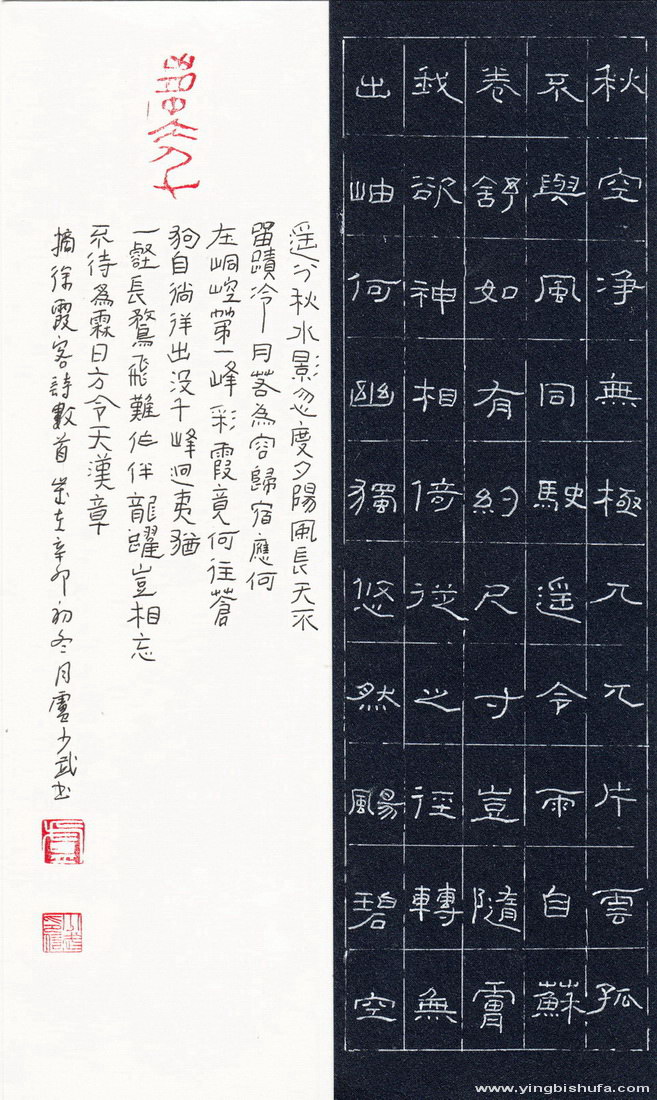 秋空净無極兀兀片雲孤
不與風同駛遥令雨自蘇
卷舒如有約尺寸豈隨膚
我欲神相倚從之徑轉無
出岫何幽獨悠然颺碧空
遥分秋水影忽度夕陽風長天不
留蹟冷月落為容歸宿應何
在峒崆第一峰彩霞竟何往蒼
狗自徜徉出没千峰迥夷猶
一壑長鶩飛難作伴龍躍豈相忘
不待爲霖日方令天漢章
摘徐霞客詩數首 歲在辛卯初冬月盧少武書
www.yingbishufa.com